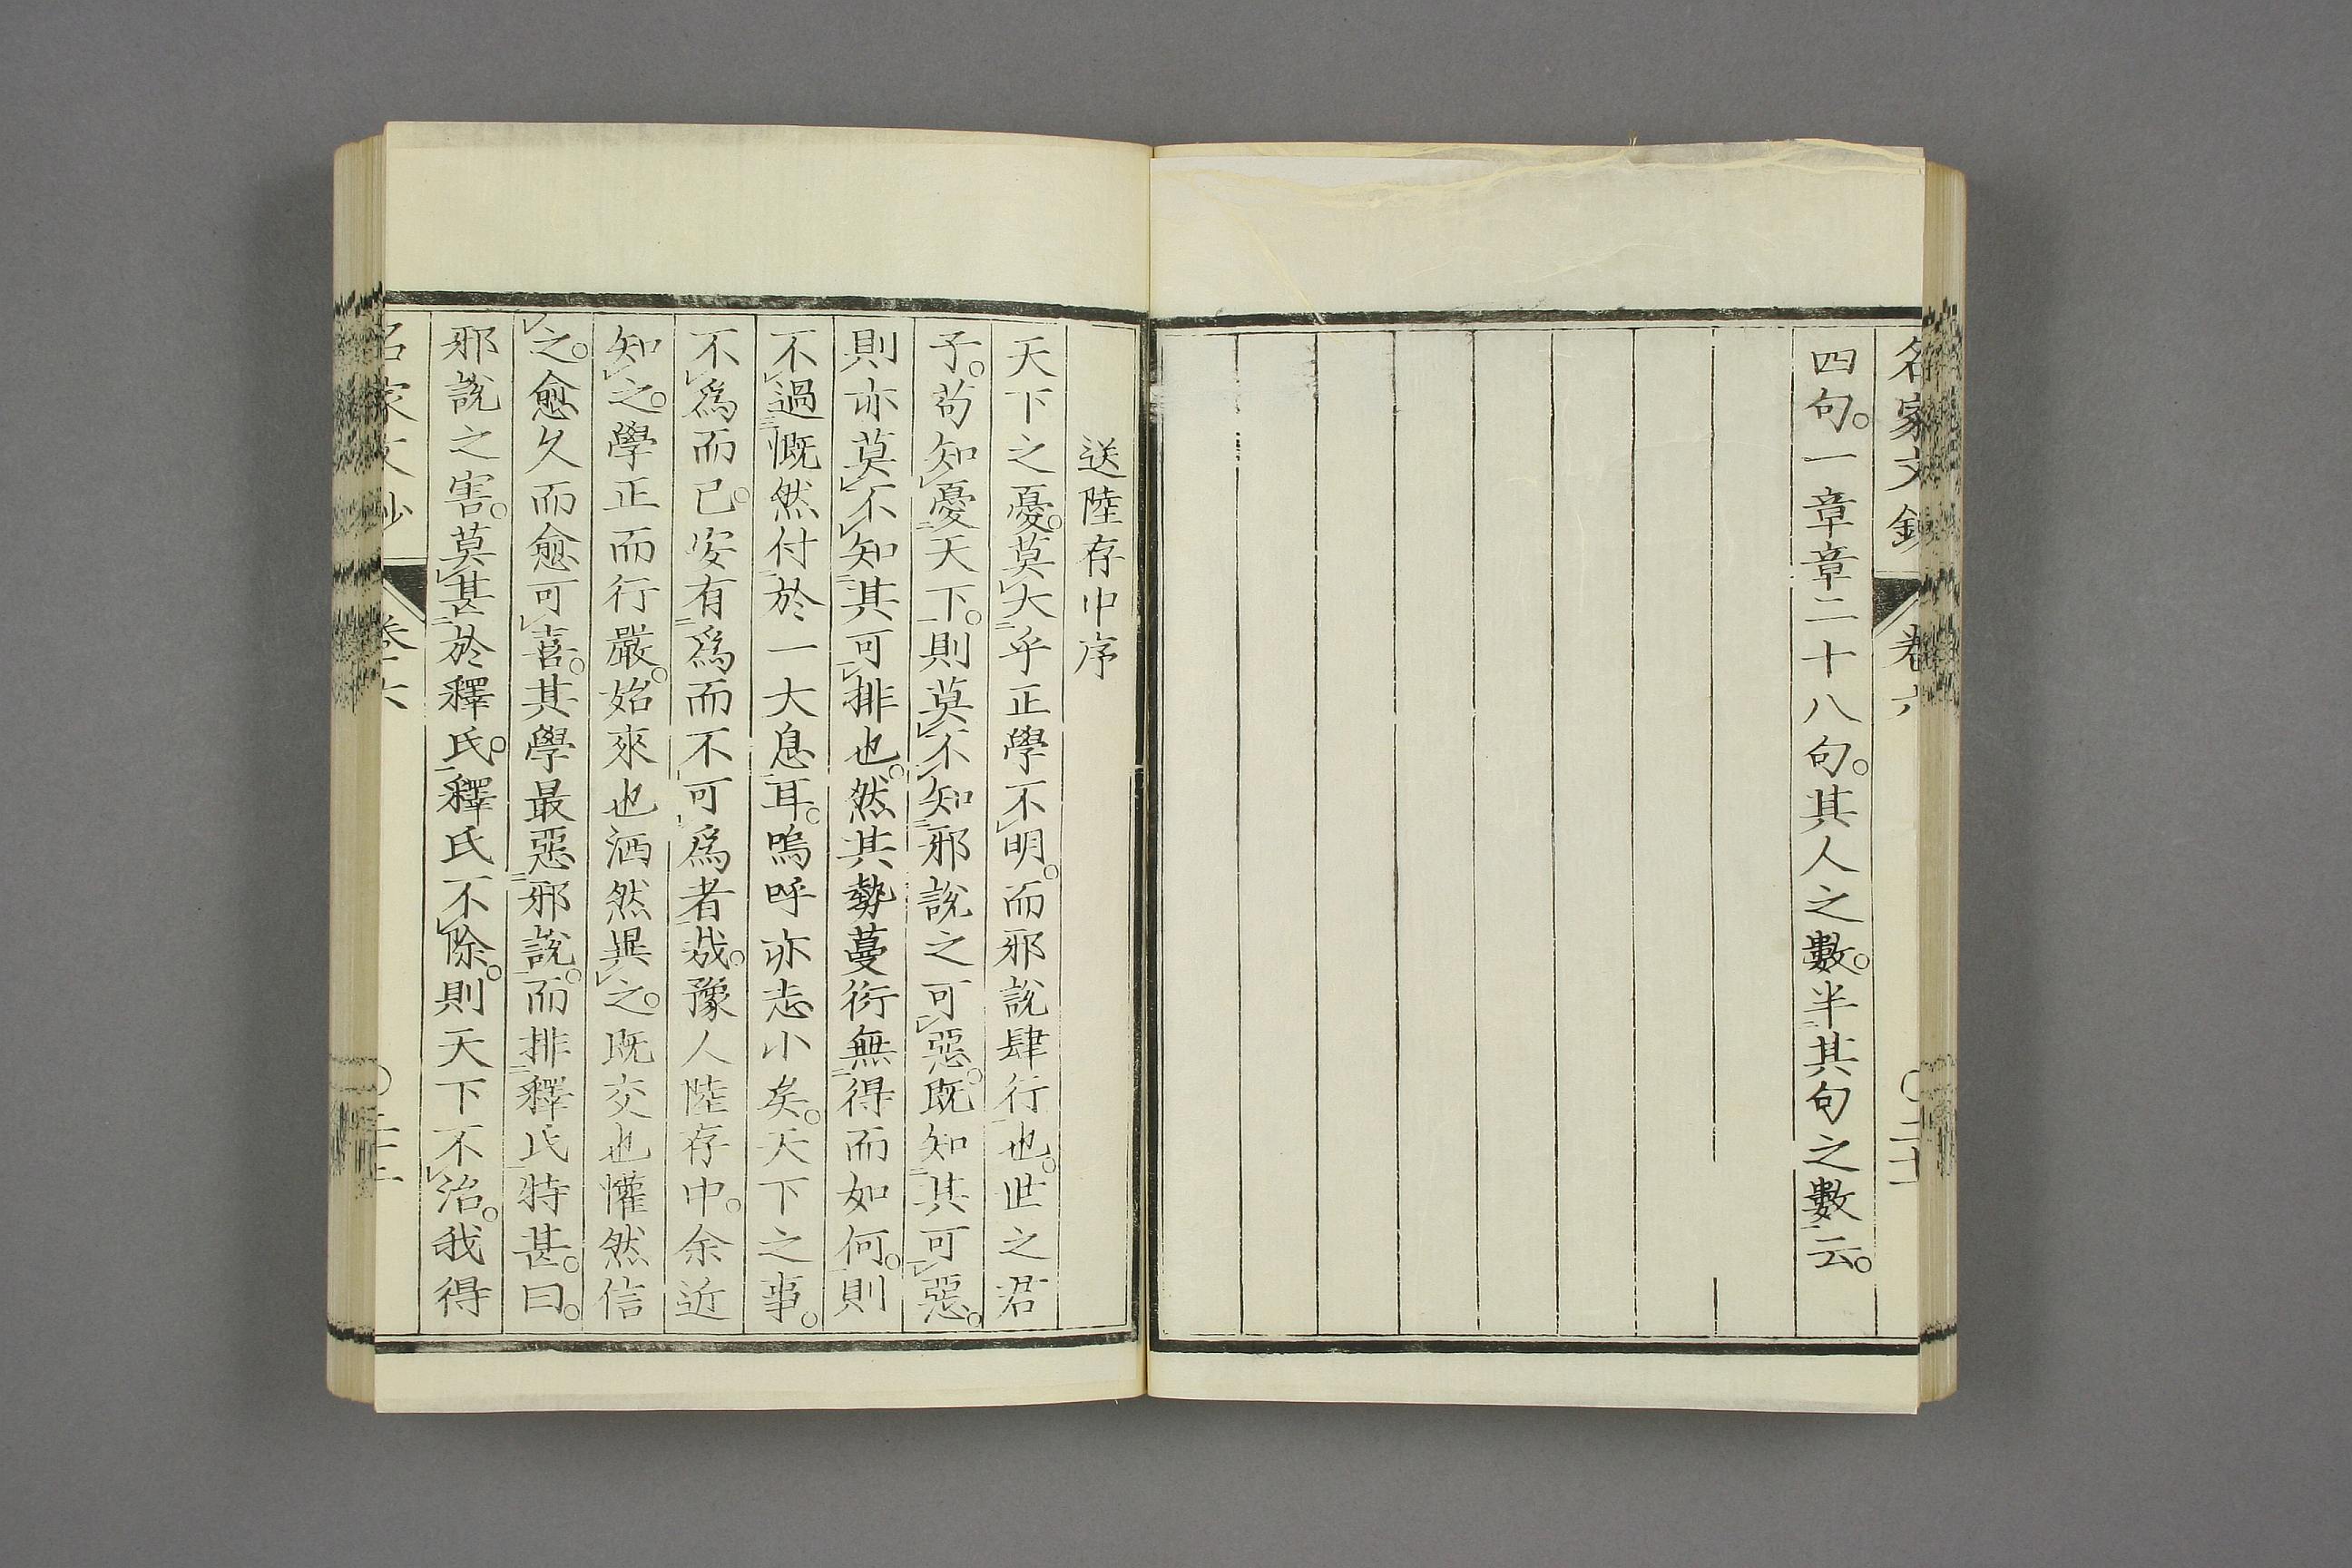 名家文鈔 卷六 〇二十一
四句。一章章二十八句。其人之數。半其句之數云。
送陸存中序
天下之憂。莫大乎正學不明。而邪說肆行也。世之君
子。苟知憂天下。則莫不知邪說之可惡。既知其可惡。
則亦莫不知其可排也。然其勢蔓衍無得而如何。則
不過慨然付於一大息耳。嗚呼亦志小矣。天下之事。
不爲而已。安有爲而不可爲者哉。豫人陸存中。余近
知之。學正而行嚴。始來也洒然異之。既交也懽然信
之。愈久而愈可喜。其學最惡邪說。而排釋氏特甚。曰。
邪說之害。莫甚於釋氏。釋氏不除。則天下不治。我得
名家文鈔 卷六